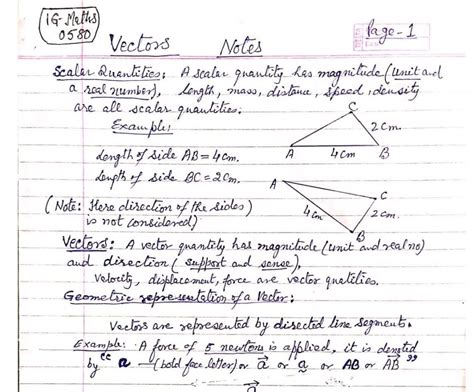 IG Maths
0580
Vectors Notes
Page-1
Scalar Quantities: A scalar quantity has magnitude (unit and
a real number), length, mass, distance, speed, density
are all scalar quantities.
Example:
C
2 cm.
A 4 cm B
Length of side AB = 4 cm.
Length of side BC = 2 cm.
A
C
4 cm 2 cm.
B
(Note: Here direction of the sides)
is not considered)
Vectors: A vector quantity has magnitude (unit and real no)
and direction (support and sense),
Velocity, displacement, force are vector quatities.
Geometric representation of a Vector:
Vectors are represented by directed line segments.
Example: A force of 5 newtons is applied, it is denoted
by "a — (bold face letter) or a⃗ or a̰ or AB or AB⃗"
a⃗